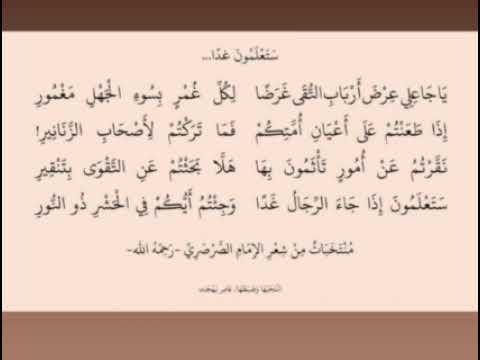 سَتَعْلَمُونَ غَدًا...
يَا جَاعِلِي عِرْضَ أَرْبَابِ التُّقَى غَرَضًا لِكُلِّ غُمْرٍ بِسُوءِ الْجَهْلِ مَغْمُورِ
إِذَا طَعَنْتُمْ عَلَى أَعْيَانِ أُمَّتِكُمْ فَمَا تَرَكْتُمْ لِأَصْحَابِ الزَّنَانِيرِ!
نَقَّرْتُمُ عَنْ أُمُورٍ تَأْثَمُونَ بِهَا هَلَّا بَحَثْتُمْ عَنِ التَّقْوَى بِتَنْقِيرِ
سَتَعْلَمُونَ إِذَا جَاءَ الرِّجَالُ غَدًا وَجِئْتُمُ أَيُّكُمْ فِي الْحَشْرِ ذُو النُّورِ
مُنْتَخَبَاتٌ مِنْ شِعْرِ الإِمَامِ الصَّرْصَرِيِّ -رَحِمَهُ الله-